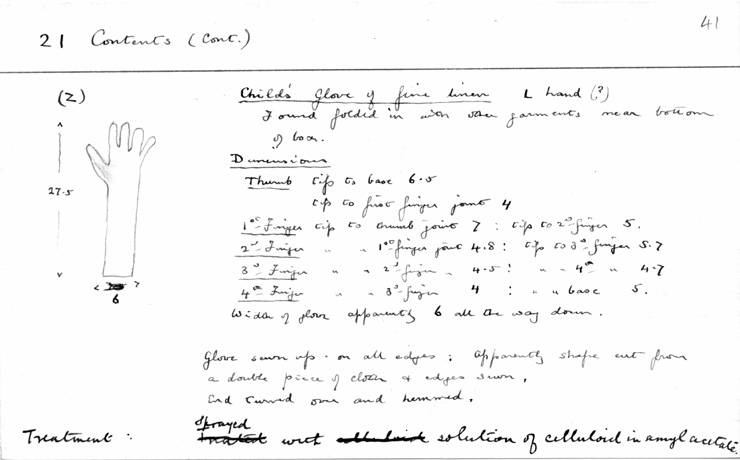 41
21 Contents (Cont.)
(Z)
Child's Glove of fine linen L hand (?)
Found folded in with other garments near bottom
of box.
27.5
6
Dimensions
Thumb tip to base 6.5
tip to first finger joint 4
1st Finger tip to thumb joint 7 : tip to 2d finger 5.
2d Finger " " 1st finger joint 4.8 : tip to 3d finger 5.7
3d Finger " " 2d finger " 4.5 : " " 4th " 4.7
4th Finger " " 3d finger 4 : " " base 5.
Width of glove apparently 6 all the way down.
Glove sewn up on all edges ; apparently shape cut from
a double piece of cloth & edges sewn,
End turned over and hemmed.
Sprayed
Treatment : treated with celluloid solution of celluloid in amyl acetate.